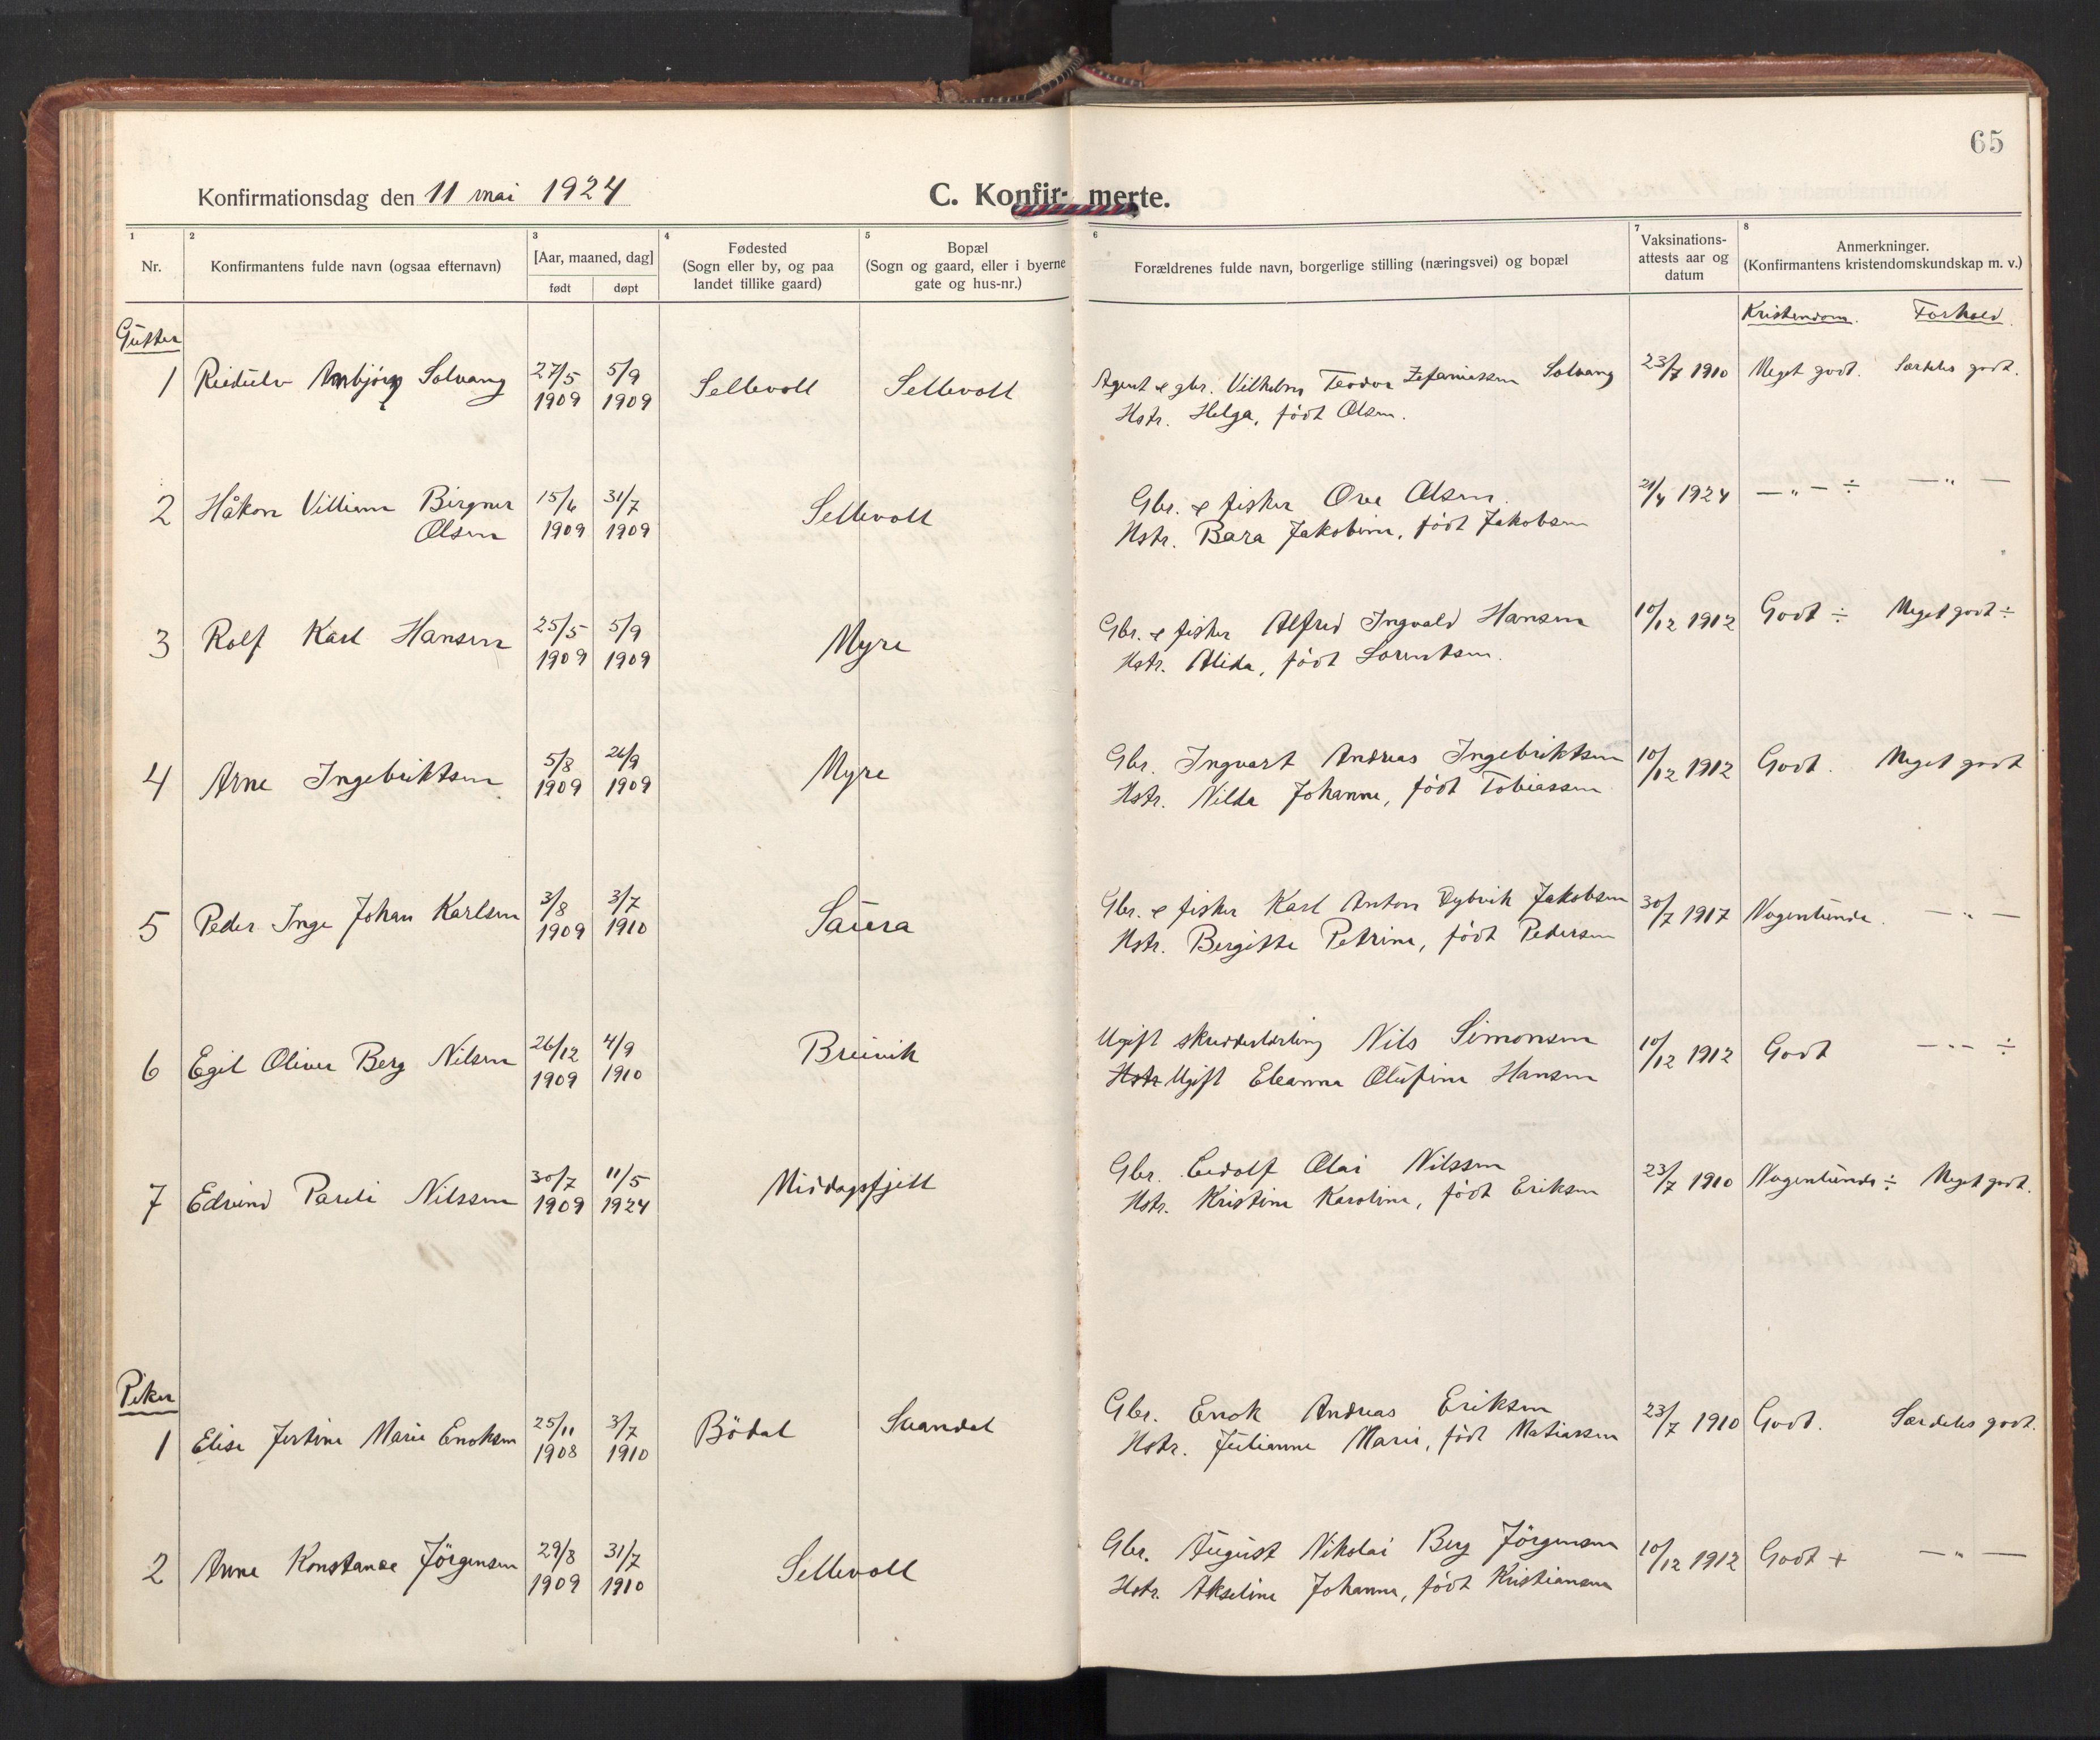 65
Konfirmationsdag den 11 mai 1924
C. Konfir- merte.
1 2 3 4 5 6 7 8
Nr.
Konfirmantens fulde navn (ogsaa efternavn)
[Aar, maaned, dag]
født døpt
Fødested
(Sogn eller by, og paa
landet tillike gaard)
Bopæl
(Sogn og gaard, eller i byerne
gate og hus-nr.)
Forældrenes fulde navn, borgerlige stilling (næringsvei) og bopæl
Vaksinations-
attests aar og
datum
Anmerkninger.
(Konfirmantens kristendomskundskap m. v.)
Kristendom. Forhold.
Gutter
1 Reidulv Arnbjørg Solvang 27/5 1909 5/9 1909 Sellevoll Sellevoll
Agent & gbr. Vilhelm Teodor Zefaniassen Solvang 23/7 1910 Meget godt. Særdeles godt.
Hstr. Helga, födt Olsen.
2 Håkon Villiam Birgner 15/6 1909 31/7 1909 Sellevoll
Olsen
Gbr. & fisker Ove Olsen. 21/4 1924 — „ — ÷ — „ —
Hstr. Bara Jakobine, födt Jakobsen
3 Rolf Karl Hansen 25/5 1909 5/9 1909 Myre
Gbr. & fisker Alfred Ingvald Hansen 10/12 1912 Godt ÷ Meget godt ÷
Hstr. Alida, födt Lorentsen.
4 Arne Ingebriktsen 5/8 1909 26/9 1909 Myre
Gbr. Ingvart Andreas Ingebriktsen 10/12 1912 Godt. Meget godt
Hstr. Nilda Johanne, födt Tobiassen
5 Peder Inge Johan Karlsen 3/8 1909 3/7 1910 Saura
Gbr. & fisker Karl Anton Dybvik Jakobsen 30/7 1917 Nogenlunde. — „ —
Hstr. Bergitte Petrine, födt Pedersen
6 Egil Oliver Berg Nilsen 26/12 1909 4/9 1910 Breivik
Ugift skredderlærling Nils Simonsen 10/12 1912 Godt — „ — ÷
Hstr Ugift Eleanna Olufine Hansen
7 Edvind Pareli Nilssen 30/7 1909 11/5 1924 Middagsfjell
Gbr. Edolf Olai Nilssen 23/7 1910 Nogenlunde ÷ Meget godt.
Hstr. Kristine Karoline, födt Eriksen
Piker
1 Elise Jertine Marie Enoksen 25/11 1908 3/7 1910 Bödal Svandal
Gbr. Enok Andreas Eriksen 23/7 1910 Godt. Særdeles godt.
Hstr. Julianne Marie, födt Matiassen
2 Anne Konstanse Jörgensen 29/8 1909 31/7 1910 Sellevoll
Gbr. August Nikolai Berg Jörgensen 10/12 1912 Godt + — „ —
Hstr. Akseline Johanna, födt Kristiansen